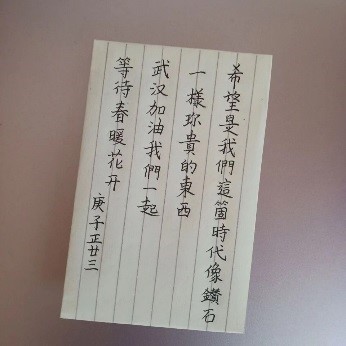 希望是我們這箇時代像鑽石
一樣珎貴的東西
武汉加油我們一起
等待春暖花开
庚子正廿三